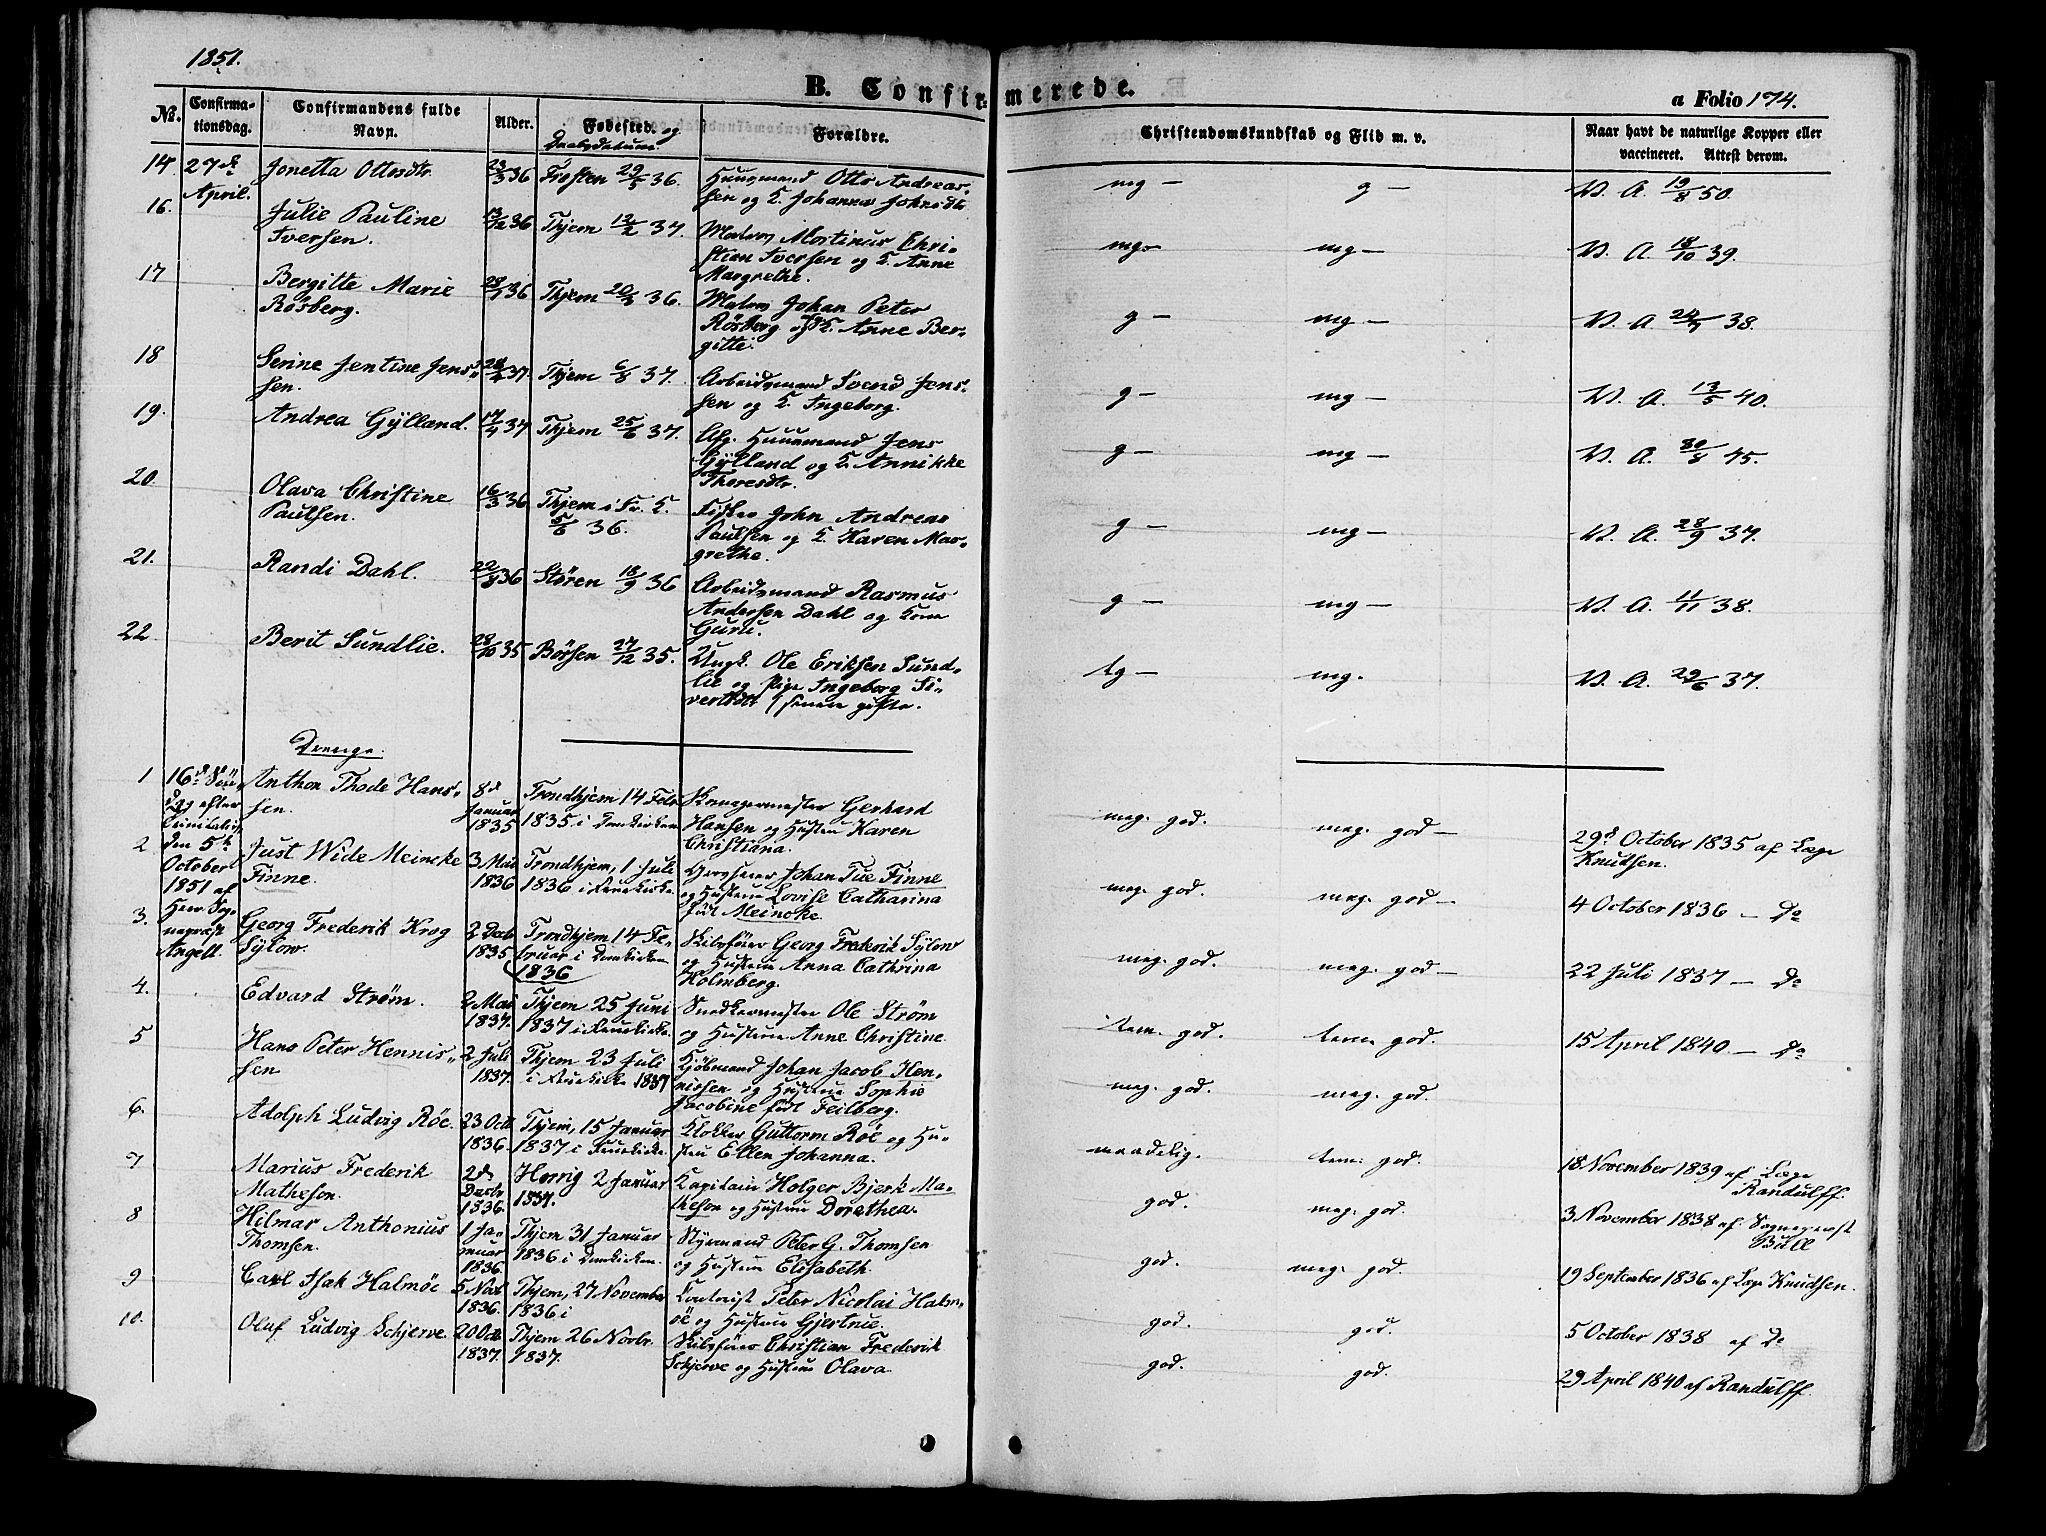 1851.
B. Confirmerede.
a Folio 174.
No. Confirmationsdag. Confirmandens fulde Navn. Alder. Fødested og Daabsdatum. Forældre. Christendomskundskab og Flid m. v. Naar havt de naturlige Kopper eller vaccineret. Attest derom.
14 27de April. Jonetta Ottersdtr. 23/3 36 Frosten 29/5 36. Huusmand Otto Andreas-
sen og K. Johanna Johnsdtr mg — g — V. A. 19/8 50.
16. Julie Pauline
Iversen. 13/12 36 Thjem 12/2 37. Matros Mortinus Chri-
stian Iversen og K. Anne
Margrethe. mg — mg — V. A. 18/10 39.
17 Bergitte Marie
Røsberg. 28/1 36 Thjem 20/3 36. Matros Johan Peter
Røsberg og K. Anne Ber-
gitte. g — mg — V. A. 24/7 38.
18 Serine Jentine Jens-
sen. 28/4 37. Thjem 6/8 37. Arbeidsmand Svend Jens-
sen og K. Ingeborg. g — mg — V. A. 13/5 40.
19. Andrea Gylland. 17/4 37 Thjem 25/6 37. Afg. Huusmand Jens
Gylland og K. Annikke
Thoresdtr. g — mg — V. A. 30/8 45.
20 Olava Christine
Paulsen. 16/3 36 Thjem i Fr. K.
5/6 36. Fisker John Andreas
Paulsen og K. Karen Mar-
grethe. g — mg — V. A. 28/9 37.
21. Randi Dahl. 22/8 36 Støren 18/9 36 Arbeidsmand Rasmus
Andersen Dahl og Kone
Guru. g — mg — V. A. 4/11 38.
22 Berit Sundlie. 28/10 35 Børsen 27/12 35. Ungk. Ole Eriksen Sund-
lie og Pige Ingeborg Si-
vertsdtr / senere gifte. tg — mg. V. A. 29/6 37.
Drenge.
16de Søn-
dag efter
Trinitatis,
den 5te
October
1851 af
Herr Sog-
nepræst
Angell.
1 Anthon Thode Hans-
sen. 8de
Januar
1835 Trondhjem 14 Febr
1835 i Domkirken Gerhard
Hansen og Hustru Karen
Christiana. meg. god. meg. god — 29de October 1835 af Læge
Knudsen.
2 Just Wide Meincke
Finne. 3 Mai
1836 Trondhjem, 1 Juli
1836 i Fruekirke Johan Tue Finne
og Hustrue Lovise Catharina
født Meincke. meg. god. meg. god — 4 October 1836 — Do
3. Georg Frederik Krog
Sylow. 2 Decb
1835 Trondhjem 14 Fe-
bruar i Domkirken
1836 Skibsfører Georg Frederik Sylow
og Hustrue Anna Cathrina
Holmberg. meg. god. meg. god — 22 Juli 1837 — Do
4. Edvard Strøm. 2 Mai
1837. Thjem 25 Juni
1837 i Fruekirke. Snedkermester Ole Strøm
og Hustrue Anne Christine tem. god. tem. god. 15 April 1840 — Do
5 Hans Peter Hennis-
sen 2 Juli
1837. Thjem 23 Juli
i Fruekirke 1837 Kjøbmand Johan Jacob Hen-
nissen og Hustrue Sophie
Jacobine født Feilberg. meg. god. meg. god.
6. Adolph Ludvig Röe. 23 Octb
1836. Thjem, 15 Januar
1837 i Fruekirke Klokker Guttorm Röe og Hu-
stru Ellen Johanna. maadelig. tem. god. 18 November 1839 af Læge
Randulff.
7 Marius Frederik
Matheson. 2de
Decbr
1836. 2 Januar
1837. Kapitain Holger Bjerk Ma-
theson og Hustrue Dorothea. god. meg. god. 3 November 1838 af Sognepræst
Bull
8 Hilmar Anthonius
Thomsen. 1 Ja-
nuar
1836. Thjem 31 Januar
1836 i Domkirken. Styrmand Peter G. Thomsen
og Hustrue Elisabeth. god. meg. god. 19 September 1836 af Læge Knudsen.
9 Carl Isak Halmöe 5 Novb
1836. Thjem, 27 November
1836 i Contorist Peter Nicolai Halm-
öe og Hustrue Gjertrue. god. god. 5 October 1838 af Do
10. Oluf Ludvig Schjerve 20 Octb
1837. Thjem 26 Novbr.
1837. Skibsfører Christian Frederik
Schjerve og Hustrue Olava. god. god. 29 April 1840 af Randulff.